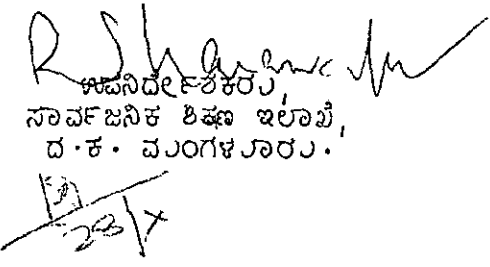 ಉಪನಿರ್ದೇಶಕರು,
ಸಾರ್ವಜನಿಕ ಶಿಕ್ಷಣ ಇಲಾಖೆ,
ದ.ಕ. ಮಂಗಳೂರು.